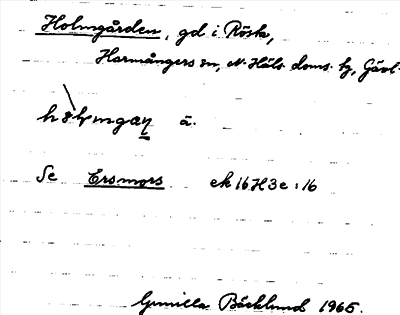 Holmgården, gd i Röska,
Harmångers sn, N. Häls. doms. hg, Gävl.
hɔlmgaɳ ä.
Se Ersmors ek 16H3e:16
Gunilla Bäcklund 1965.